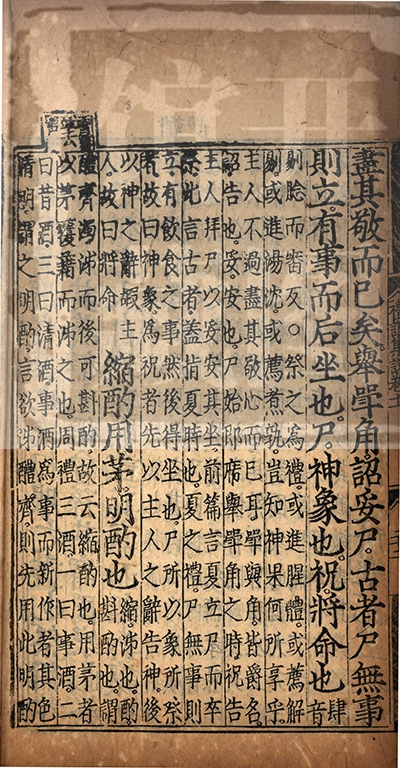 盡其敬而已矣。舉斝角。詔妥尸。古者尸無事
則立。有事而后坐也。尸。神象也。祝。將命也 肆音
剔腍而審反。○祭之為禮。或進腥體。或薦解
剔。或進湯沈。或薦煮孰。豈知神果何所享乎。
主人不過盡其敬心而已耳。斝與角。皆爵名。
詔告也。妥安也。尸始即席舉斝角之時。祝告
主人拜尸以妥安其坐。前篇言夏立尸而卒
祭。此言古者。蓋指夏時也。夏之禮。尸無事則
立。有飲食之事。然後得坐也。尸所以象所祭
者。故曰神象。為祝者先以主人之辭告神。後
以神之辭嘏主人。故曰將命
縮酌用茅。明酌也 縮泲也。酌斟酌也。謂
醴齊濁。泲而後可斟酌。故云縮酌也。用茅者
以茅覆藉而泲之也。周禮三酒。一曰事酒。二
曰昔酒。三曰清酒。事酒為事而新作者。其色
清明。謂之明酌。言欲泲醴齊。則先用此明酌